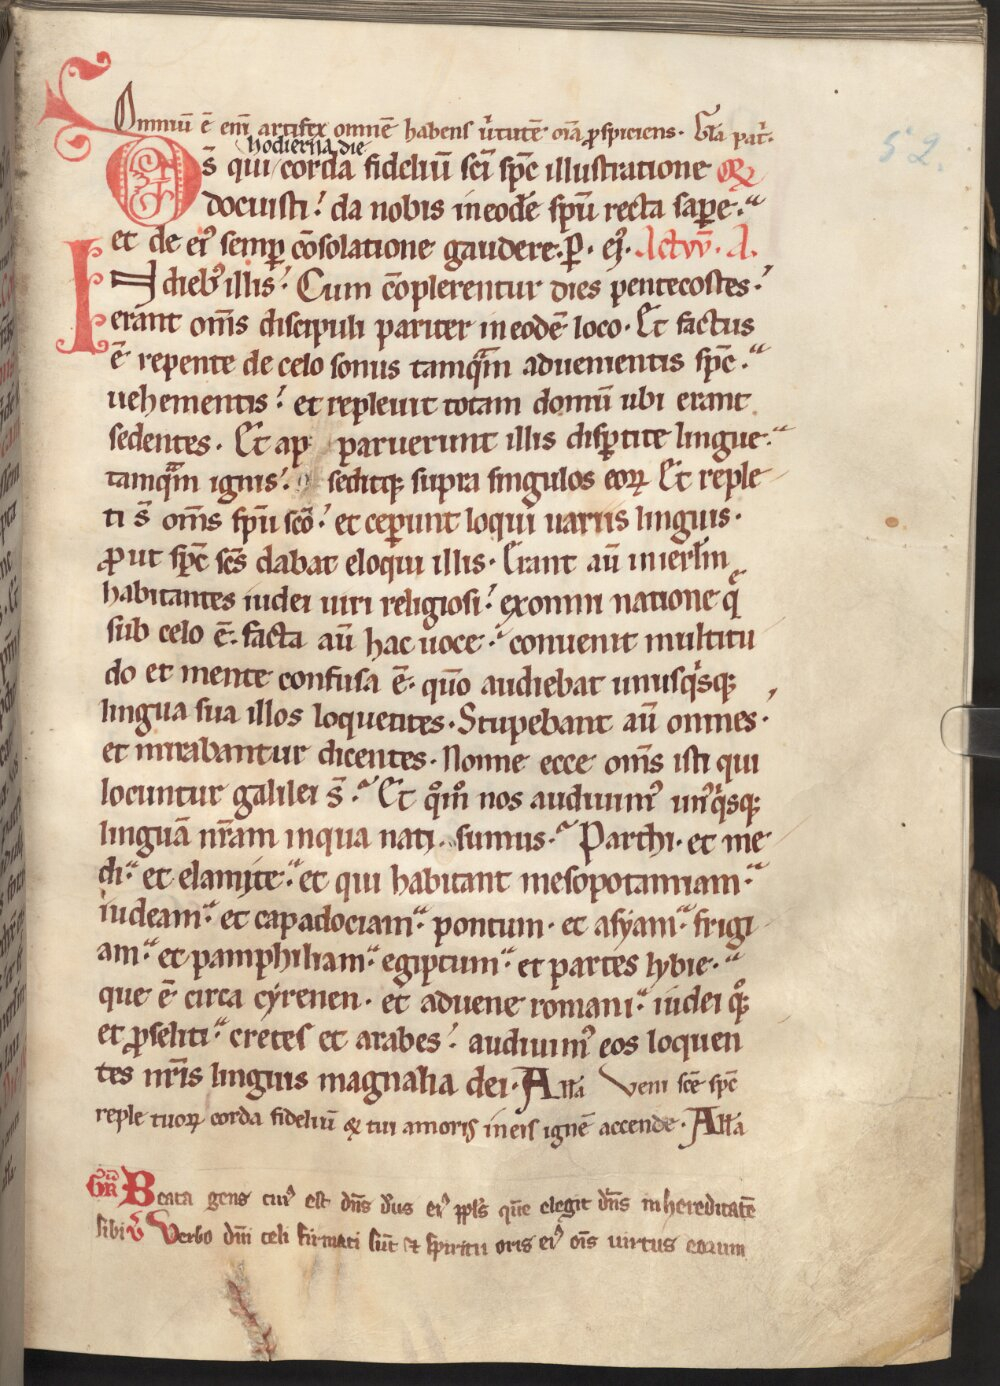 Omniū ē eni artifex omnē habens v̓tutē oīa ꝓspiciens. Gl̄a pat̓.
hodierna die
D s̄ qui corda fideliū sc̄i sp̄c illustratione
docuisti: da nobis in eodē sp̄u recta sapere.
et de ei᾽ semp̱ cōsolatione gaudere. P. ej̓. Actuū. A.
In dieb᾽ illis: Cum cōplerentur dies pentecostes:
erant om̄s discipuli pariter in eodē loco. Et factus
ē repente de celo sonus tamqᷓm aduenientis sp̄c.
uehementis: et repleuit totam domū ubi erant
sedentes. Et ap paruerunt illis disp̱tite lingue:
tamqᷓm ignis: seditq; supra singulos eoꝝ Et reple
ti s̄ om̄s sp̄u sc̄o: et cep̱unt loqui uariis linguis.
ꝓut sp̄c sc̄s dabat eloqui illis. Erant aū in ierl̄m
habitantes iudei uiri religiosi: ex omni natione q̄
sub celo ē. facta aū hac uoce: conuenit multitu
do et mente confusa ē. qūo audiebat unusqͥsq;
lingua sua illos loquentes. Stupebant aū omnes.
et mirabantur dicentes. Nonne ecce om̄s isti qui
locuntur galilei s̄: Et qͦmͦ nos audiuim᾽ un᾽qͥsq;
linguā nr̄am in qua nati sumus: Parthi. et me
di: et elamite: et qui habitant mesopotamiam:
iudeam: et capadociam: pontum. et asyam: frigi
am: et pamphiliam: egiptum: et partes lybie.
que ē circa cyrenen. et aduene romani: iudei qͦ;
et ꝓseliti: cretes et arabes: audiuim᾽ eos loquen
tes nr̄is linguis magnalia dei. All̄a Veni sc̄e sp̄c
reple tuoꝝ corda fideliū & tui amoris in eis ignē accende. All̄a
GR̄ Beata gens cui᾽ est dn̄s d̄us ei᾽ ppl̄s quē elegit dn̄s in hereditatē
sibi V̓ Verbo dn̄i celi firmati sūt et spiritu oris ei᾽ oīs uirtus eorum
52.